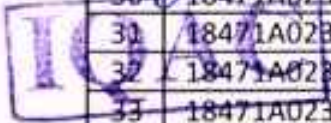 31 18471A023
32 18471A023
33 18471A023
IQAC